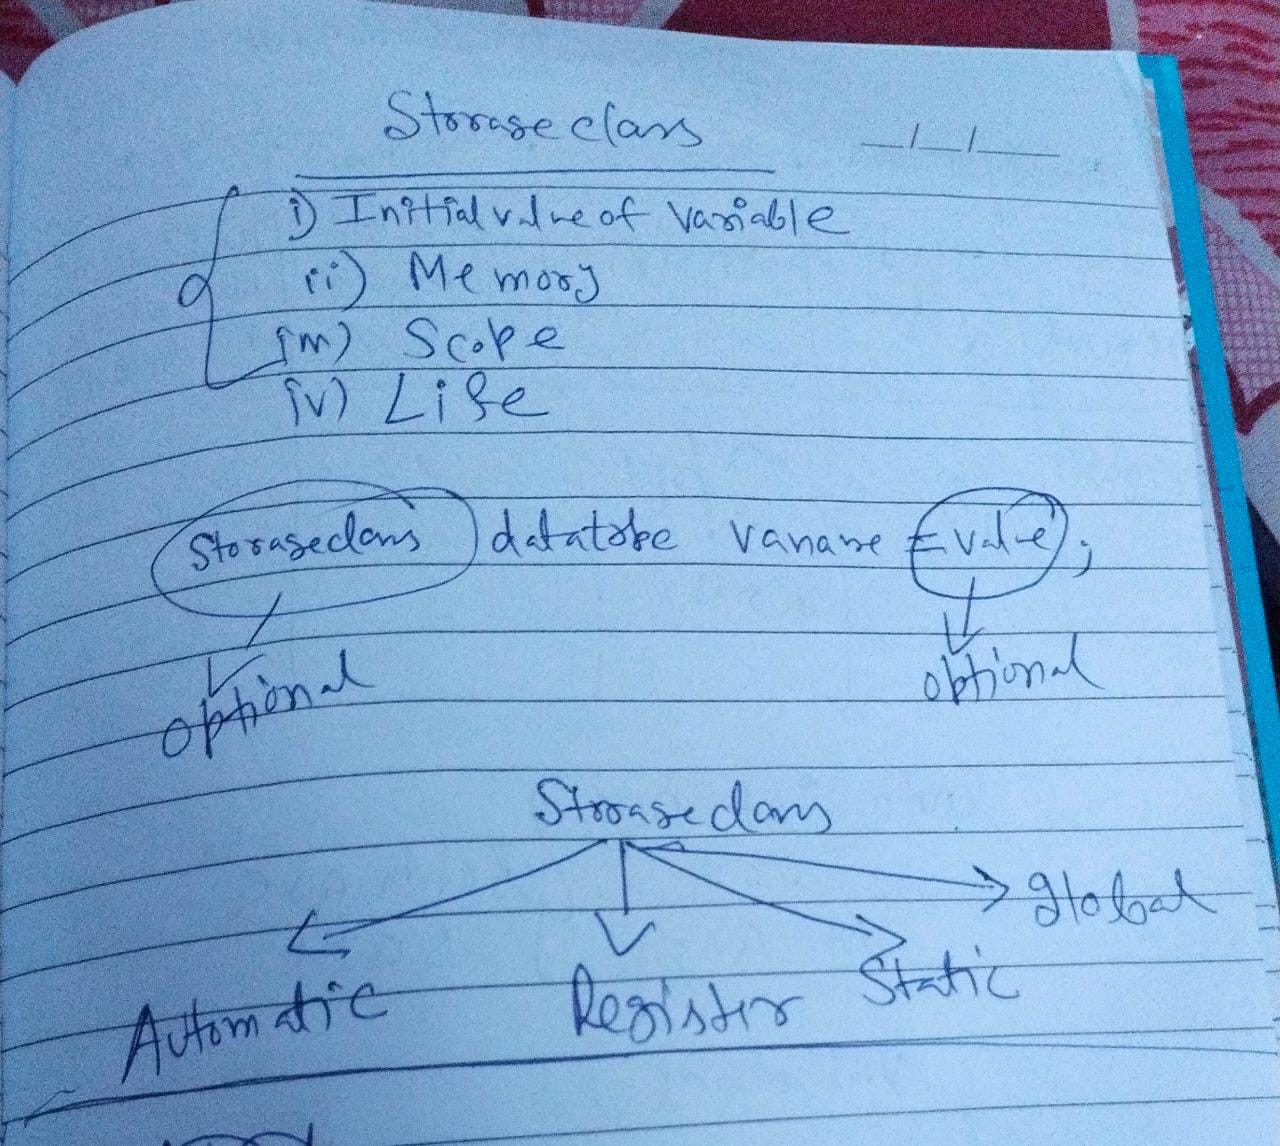 Storage class
i) Initial value of Variable
ii) Memory
iii) Scope
iv) Life
Storageclass datatype varname = value;
optional optional
Storageclass
Automatic Register Static global